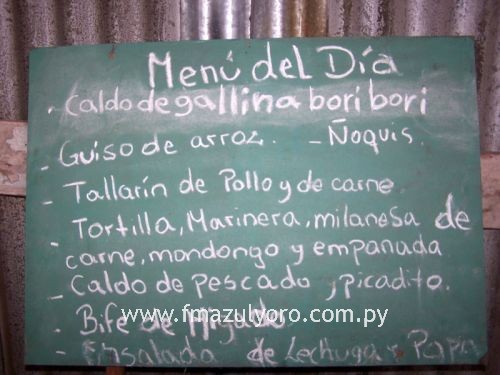 Menú del Día
- Caldo de gallina bori bori
- Guiso de arroz. - Ñoquis.
- Tallarín de Pollo y de carne
- Tortilla, Marinera, milanesa de
carne, mondongo y empanada
- Caldo de pescado y picadito.
www.fmazulyoro.com.py
- Bife de Hígado
- Ensalada de Lechuga y Papa